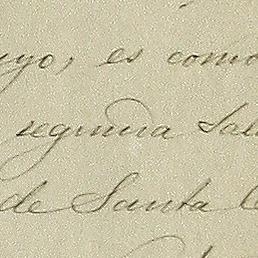 uyo, es como
segunda Sal
de Santa C